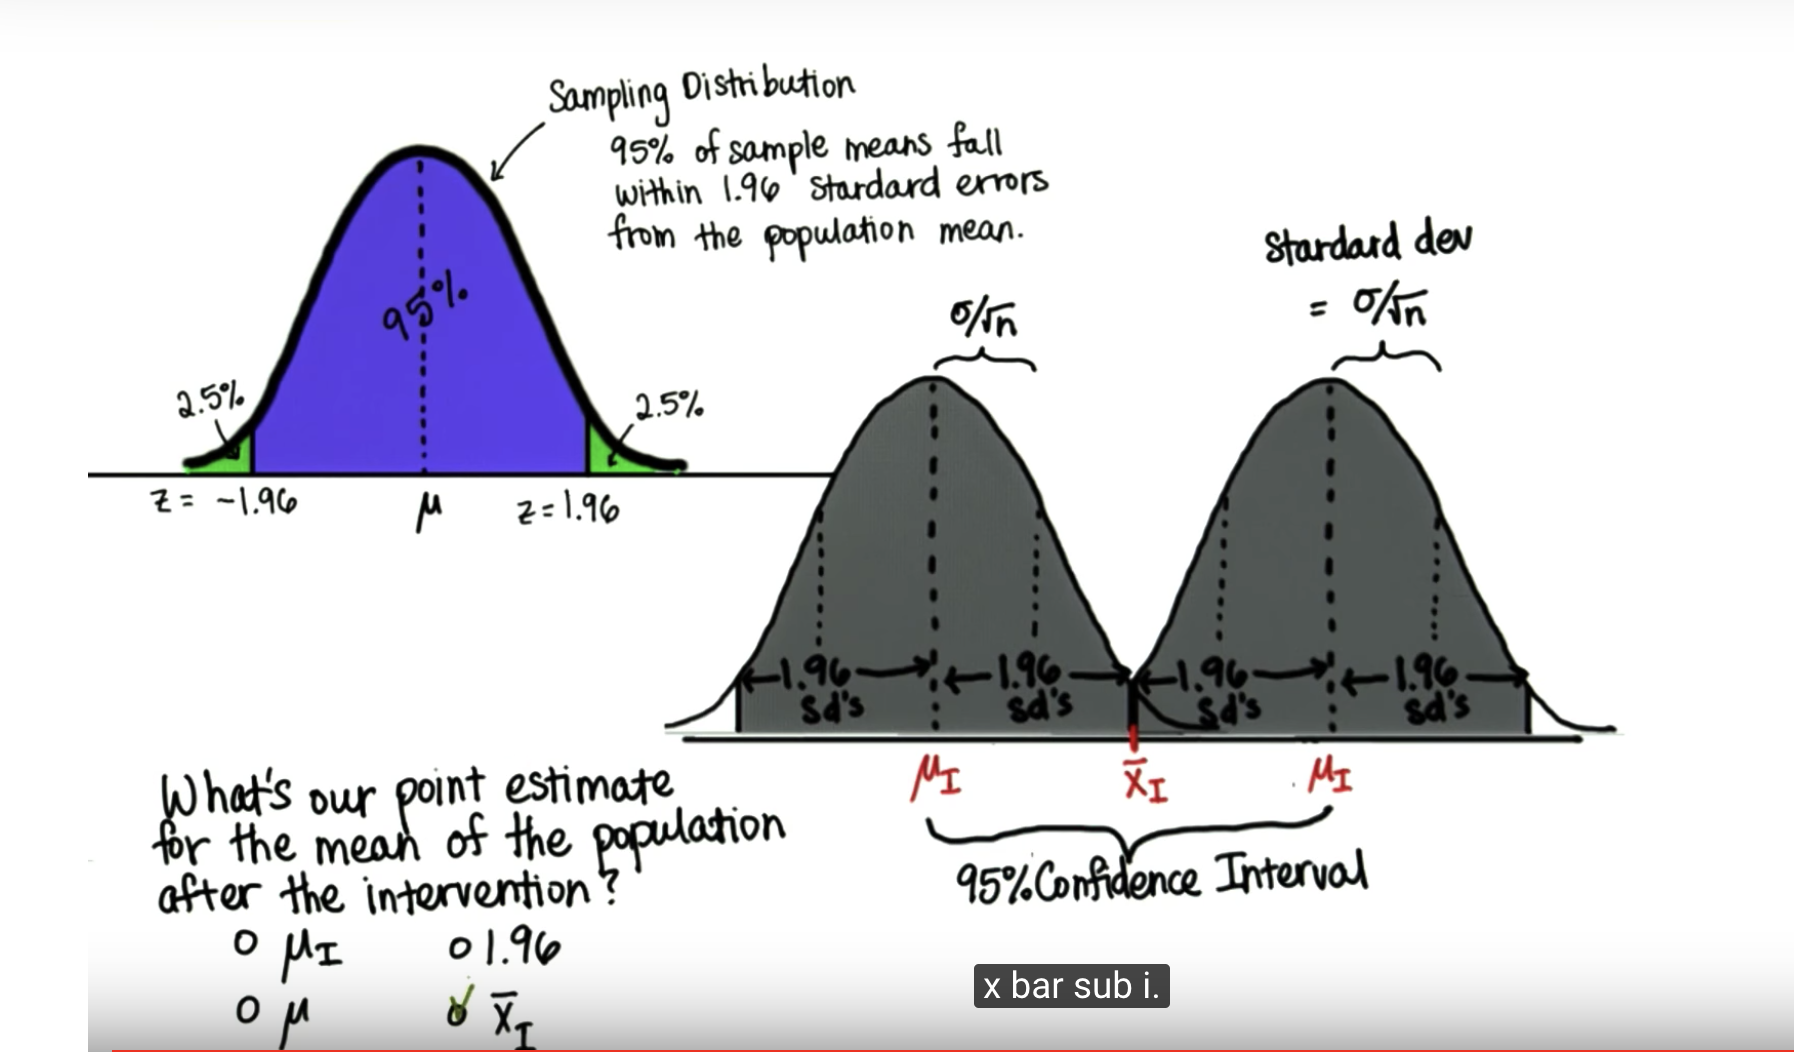 Sampling Distribution
95% of sample means fall
within 1.96 stardard errors
from the population mean.
95%
2.5%
2.5%
z = -1.96
μ
z = 1.96
σ/√n
stardard dev
= σ/√n
←1.96→
sd's
←1.96→
sd's
←1.96→
sd's
←1.96→
sd's
μI
x̄I
μI
95% Confidence Interval
What's our point estimate
for the mean of the population
after the intervention?
O μI
O 1.96
O μ
O x̄I
x bar sub i.